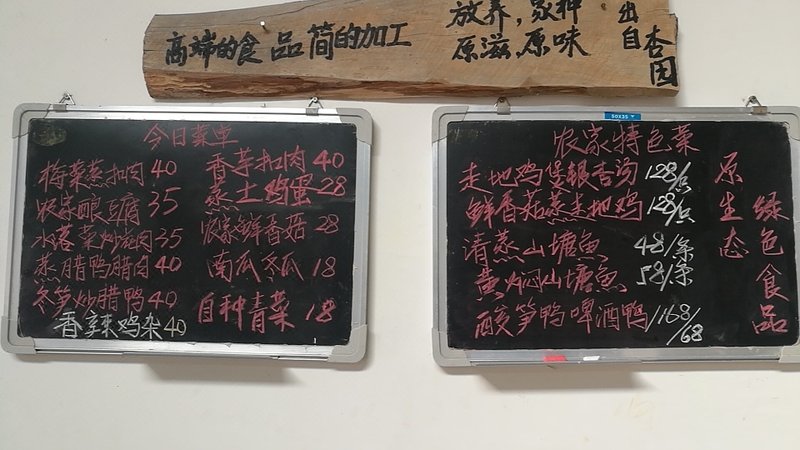 高端的食品简的加工
放养,家种
原滋,原味
出自杏园
今日菜单
梅菜蒸扣肉40
农家酿豆腐35
水落菜炒烧肉35
蒸腊鸭腊肉40
冬笋炒腊鸭40
香辣鸡杂40
香芋扣肉40
蒸土鸡蛋28
农家鲜香菇28
南瓜冬瓜18
自种青菜18
50X35
农家特色菜
走地鸡煲银杏汤128/点
鲜香菇蒸走地鸡128/点
清蒸山塘魚48/条
黄焖山塘魚58/条
酸笋鸭啤酒鸭/168/68
原生态
绿色食品